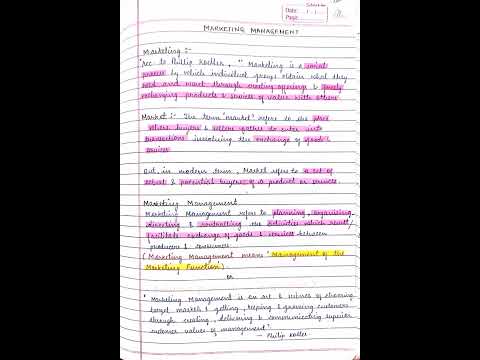 Date
Page
MARKETING MANAGEMENT
Marketing :-
"Acc. to Philip Kotler, " Marketing is a social
process by which individual groups obtain what they
need and want through creating offerings & freely
exchanging products & services of value with others
Market :- The term 'market' refers to the place
where buyers & sellers gather to enter into
transactions involving the exchange of goods &
services
But, in modern term, Market refers to a set of
actual & potential buyers of a product or service.
Marketing Management
Marketing Management refers to planning, organising,
directing & controlling the activities which result/
facilitate exchange of goods & services between
producers & consumers
(Marketing Management means 'Management of the
Marketing Function')
or
" Marketing Management is an art & science of choosing
target markets & getting, keeping & growing customers
through creating, delivering & communicating superior
customer values of management"
- Philip Kotler